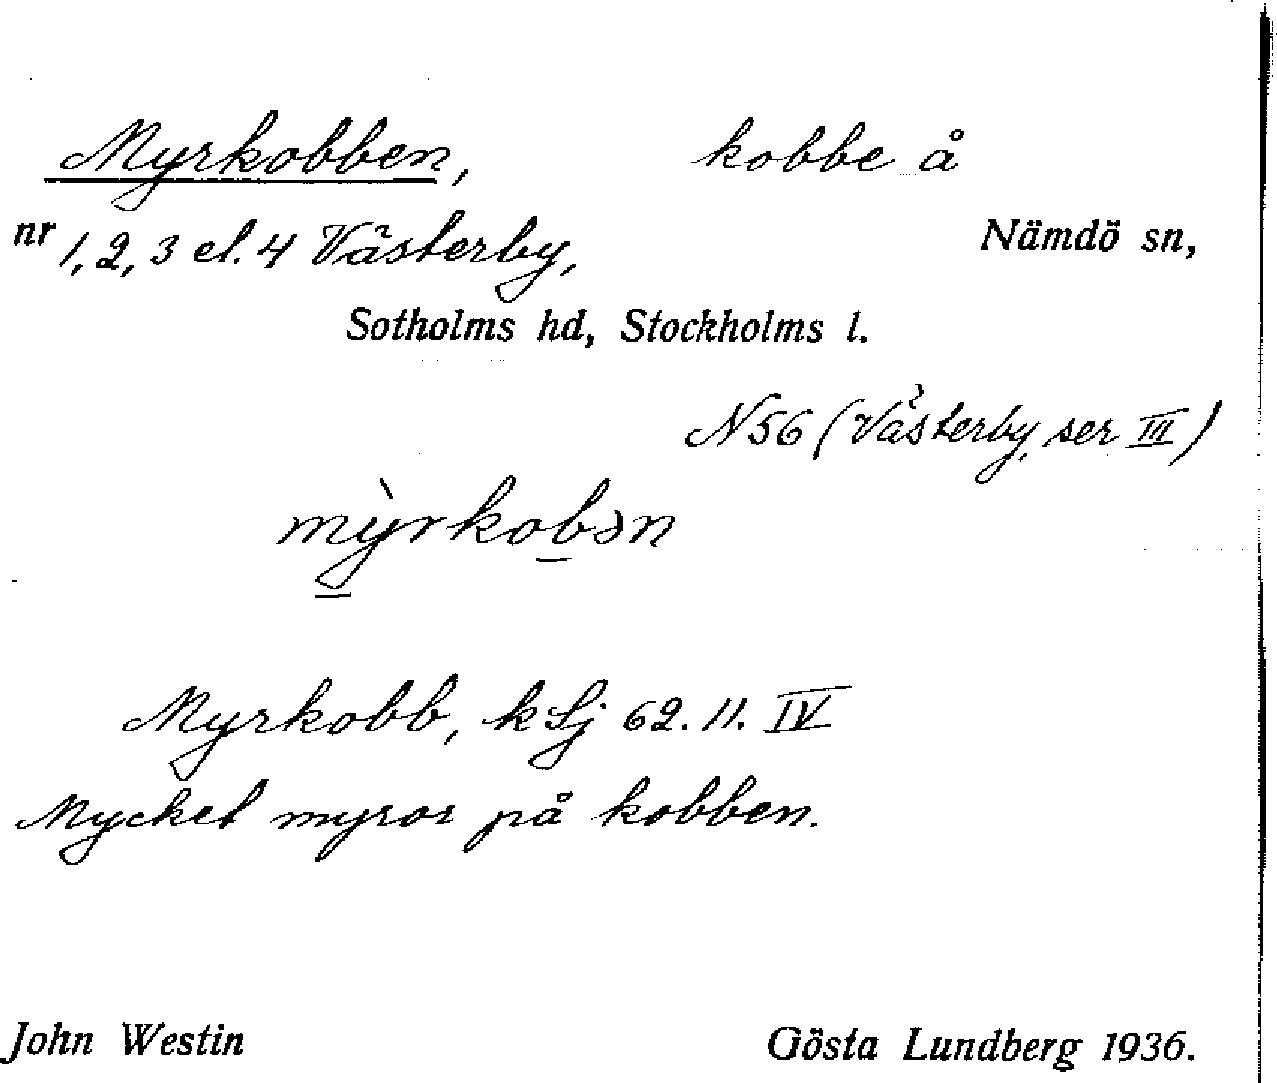 Myrkobben, kobbe å
nr 1, 2, 3 el. 4 Västerby, Nämdö sn,
Sotholms hd, Stockholms l.
N56 (Västerby, ser III)
mỳrkobən
Myrkobb, k Lj 62. 11. IV
Mycket myror på kobben.
John Westin Gösta Lundberg 1936.